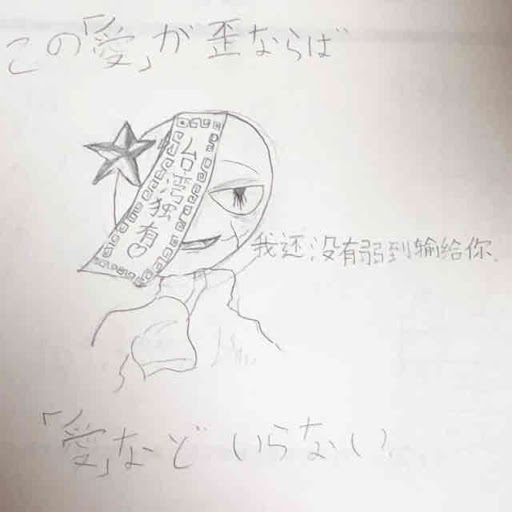 この「愛」が歪ならば
台湾独有♡
我还没有弱到输给你.
「愛」など いらない.